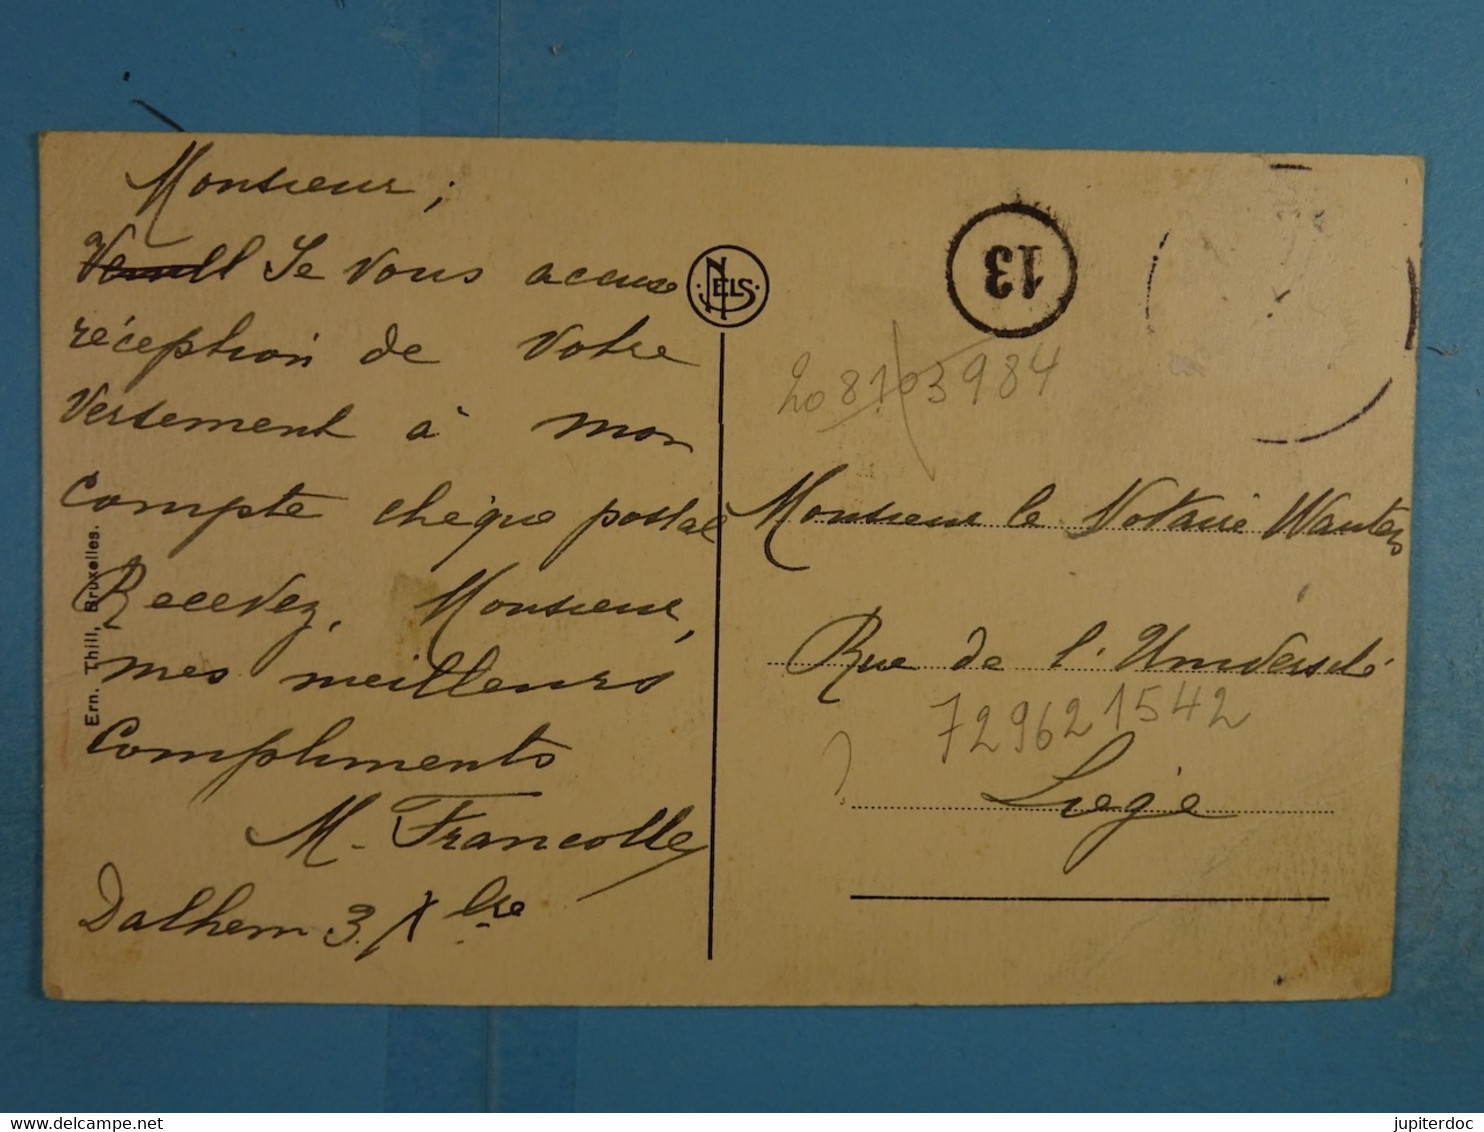 Monsieur,
Je vous accuse
réception de votre
versement à mon
compte chèque postal
Recevez, Monsieur,
mes meilleurs
compliments
M. Francotte
Dalhem 3 Xbre
Ern. Thill, Bruxelles.
NELS
13
208103984
Monsieur le Notaire Wauters
Rue de l'Université
729621542
Liège
jupiterdoc